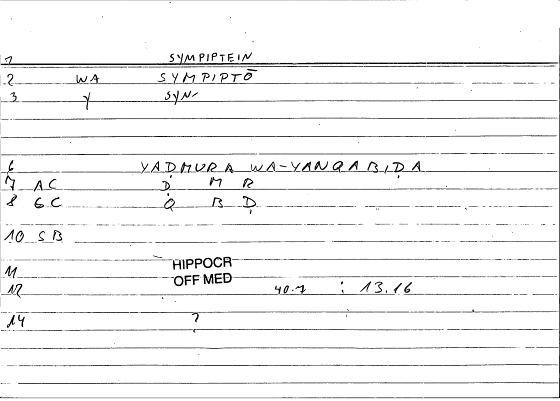 1 SYMPIPTEIN
2 WA SYMPIPTŌ
3 Y SYN-
6 YAḌMURA WA-YANQABIḌA
7 AC Ḍ M R
8 GC Q B Ḍ
10 SB
11 HIPPOCR
12 OFF MED 40.7 : 13.16
14 ?